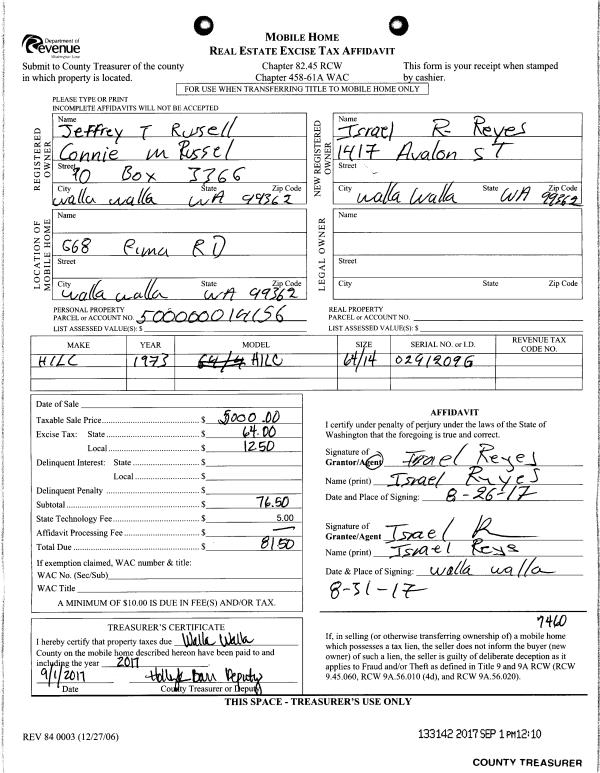 Department of
Revenue
Washington State
MOBILE HOME
REAL ESTATE EXCISE TAX AFFIDAVIT
Submit to County Treasurer of the county
in which property is located.
Chapter 82.45 RCW
Chapter 458-61A WAC
This form is your receipt when stamped
by cashier.
FOR USE WHEN TRANSFERRING TITLE TO MOBILE HOME ONLY
PLEASE TYPE OR PRINT
INCOMPLETE AFFIDAVITS WILL NOT BE ACCEPTED
REGISTERED OWNER
Name
Jeffrey T Russell
Connie M Russel
Street PO Box 3366
City State Zip Code
Walla Walla WA 99362
NEW REGISTERED OWNER
Name
Israel R- Reyes
1417 Avalon ST
Street
City State Zip Code
Walla Walla WA 99362
LOCATION OF MOBILE HOME
Name
668 Pima RD
Street
City State Zip Code
Walla Walla WA 99362
LEGAL OWNER
Name
Street
City State Zip Code
PERSONAL PROPERTY
PARCEL or ACCOUNT NO. 500000019156
LIST ASSESSED VALUE(S): $
REAL PROPERTY
PARCEL or ACCOUNT NO.
LIST ASSESSED VALUE(S): $
MAKE YEAR MODEL SIZE SERIAL NO. or I.D. REVENUE TAX CODE NO.
HILC 1973 HILC 64/14 0291209G
Date of Sale
Taxable Sale Price $ 5000.00
Excise Tax: State $ 64.00
Local $ 1250
Delinquent Interest: State $
Local $
Delinquent Penalty $
Subtotal $ 76.50
State Technology Fee $ 5.00
Affidavit Processing Fee $ —
Total Due $ 81.50
If exemption claimed, WAC number & title:
WAC No. (Sec/Sub)
WAC Title
A MINIMUM OF $10.00 IS DUE IN FEE(S) AND/OR TAX.
AFFIDAVIT
I certify under penalty of perjury under the laws of the State of
Washington that the foregoing is true and correct.
Signature of
Grantor/Agent Israel Reyes
Name (print) Israel Reyes
Date and Place of Signing: 8-26-17
Signature of
Grantee/Agent Israel R
Name (print) Israel Reys
Date & Place of Signing: Walla Walla
8-31-17
TREASURER'S CERTIFICATE
I hereby certify that property taxes due Walla Walla
County on the mobile home described hereon have been paid to and
including the year 2017
9/1/2017 Holly K Barr Deputy
Date County Treasurer or Deputy
7460
If, in selling (or otherwise transferring ownership of) a mobile home
which possesses a tax lien, the seller does not inform the buyer (new
owner) of such a lien, the seller is guilty of deliberate deception as it
applies to Fraud and/or Theft as defined in Title 9 and 9A RCW (RCW
9.45.060, RCW 9A.56.010 (4d), and RCW 9A.56.020).
THIS SPACE - TREASURER'S USE ONLY
REV 84 0003 (12/27/06)
133142 2017 SEP 1 PM 12:10
COUNTY TREASURER